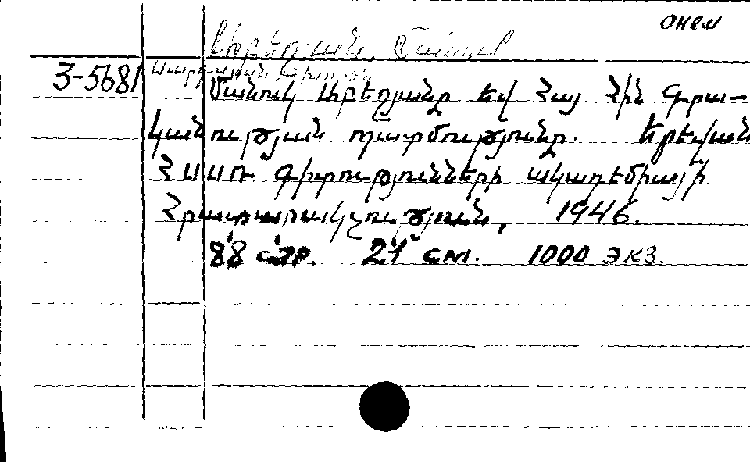 онем
Աբեղյան, Մանուկ
3-5681
Մանուկ Աբեղյանը եվ Հայ Հին Գրա-
կանության պատմությունը. Երեվան
ՀՍՍՌ Գիտությունների ակադեմիայի
Հրատարակչություն, 1946.
88 стр. 21 см. 1000 экз.